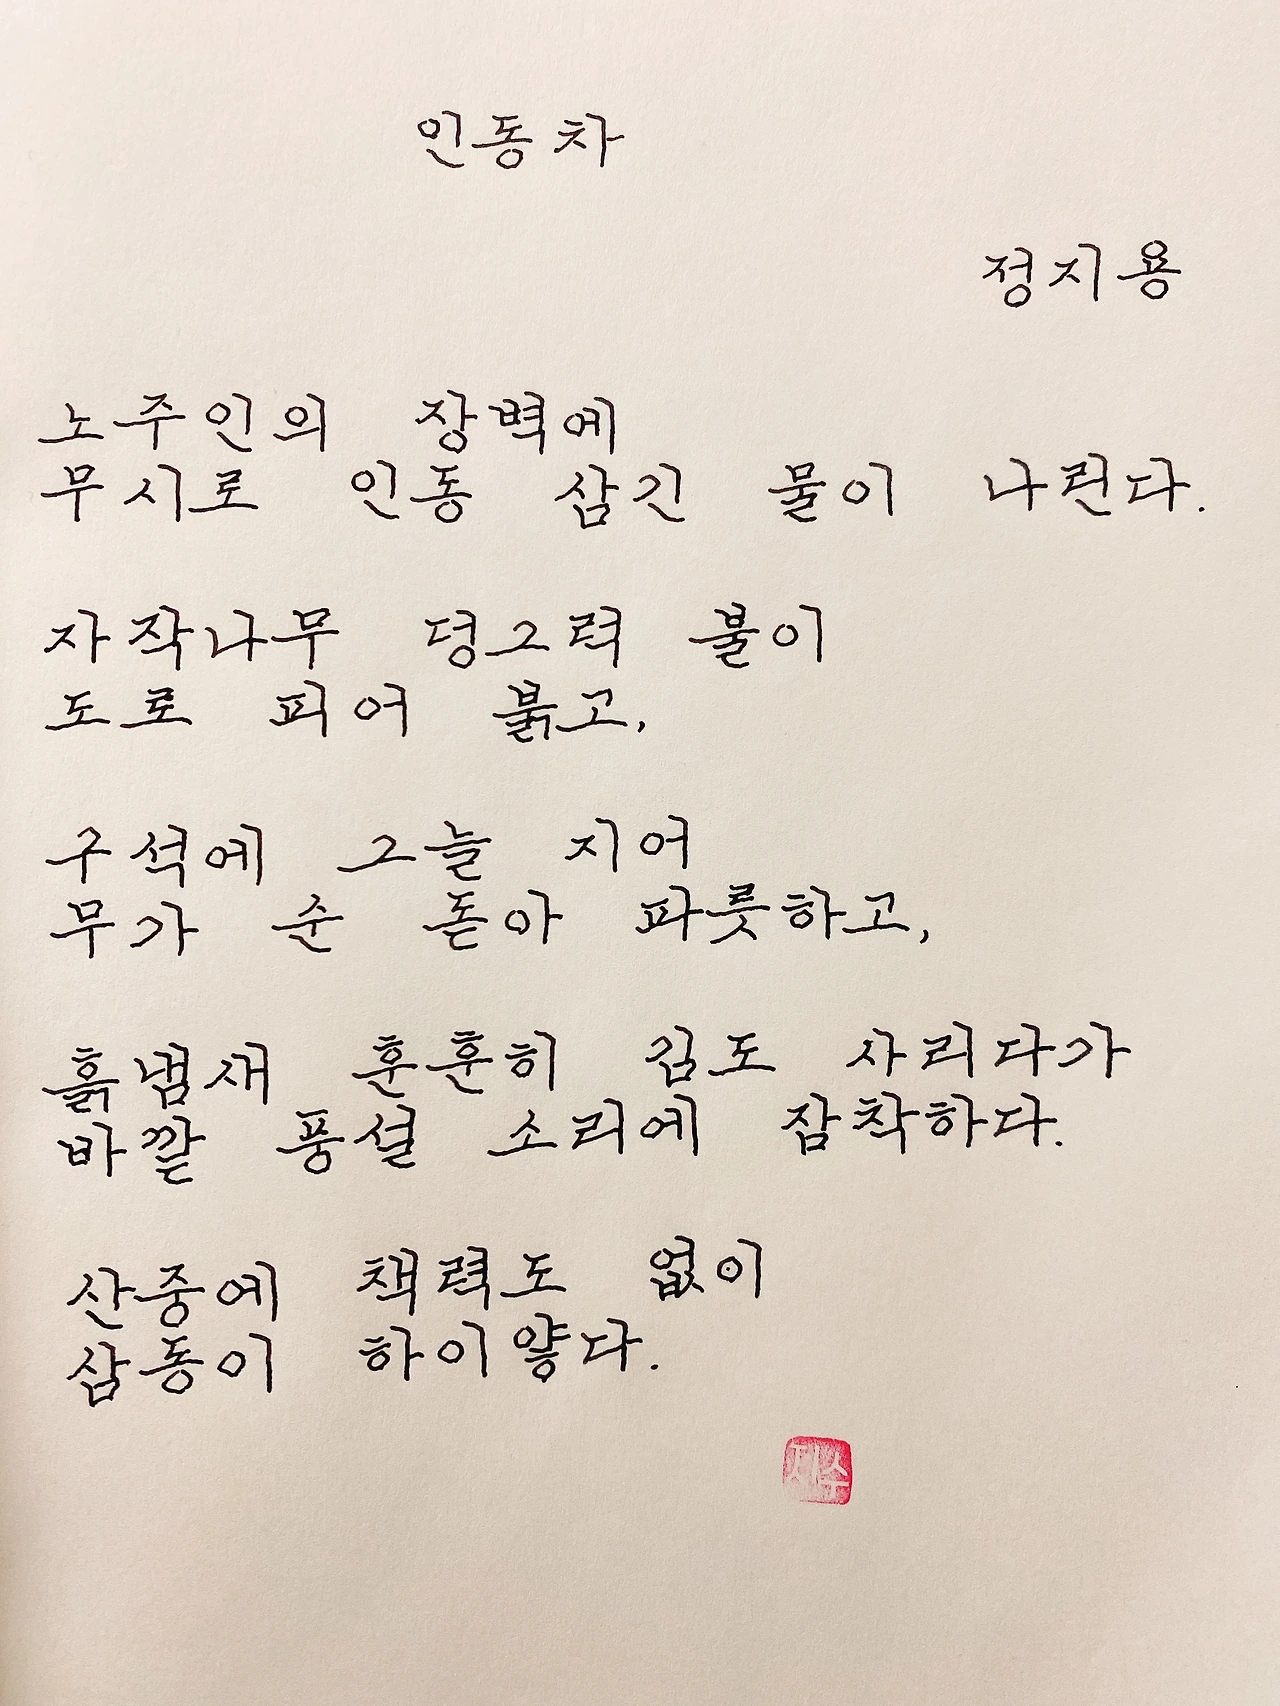 인동차
정지용
노주인의 장벽에
무시로 인동 삼긴 물이 나린다.
자작나무 덩그럭 불이
도로 피어 붉고,
구석에 그늘 지어
무가 순 돋아 파릇하고,
흙냄새 훈훈히 김도 사리다가
바깥 풍설 소리에 잠착하다.
산중에 책력도 없이
삼동이 하이얗다.
지수